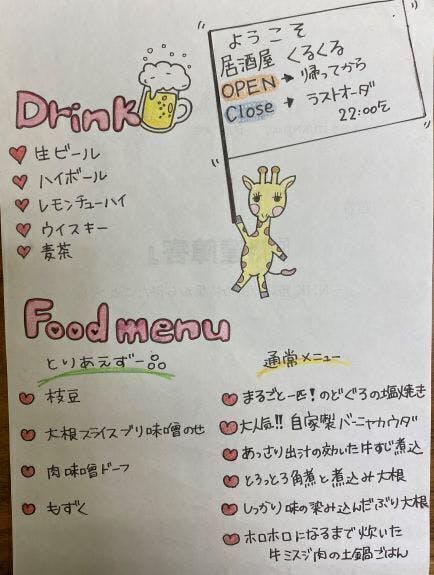 ようこそ
居酒屋 くるくる
OPEN → 帰ってから
Close → ラストオーダ
22:00迄
Drink
生ビール
ハイボール
レモンチューハイ
ウイスキー
麦茶
Food menu
とりあえずー
枝豆
大根スライスブリ味噌のせ
肉味噌ドーフ
もずく
通常メニュー
まるごと一匹!のどぐろの塩焼き
大人気!!自家製バーニャカウダ
あっさり出汁の効いた牛すじ煮込
とろっとろ角煮と煮込み大根
しっかり味の染み込んだぶり大根
ホロホロになるまで炊いた
牛ミスジ肉の土鍋ごはん